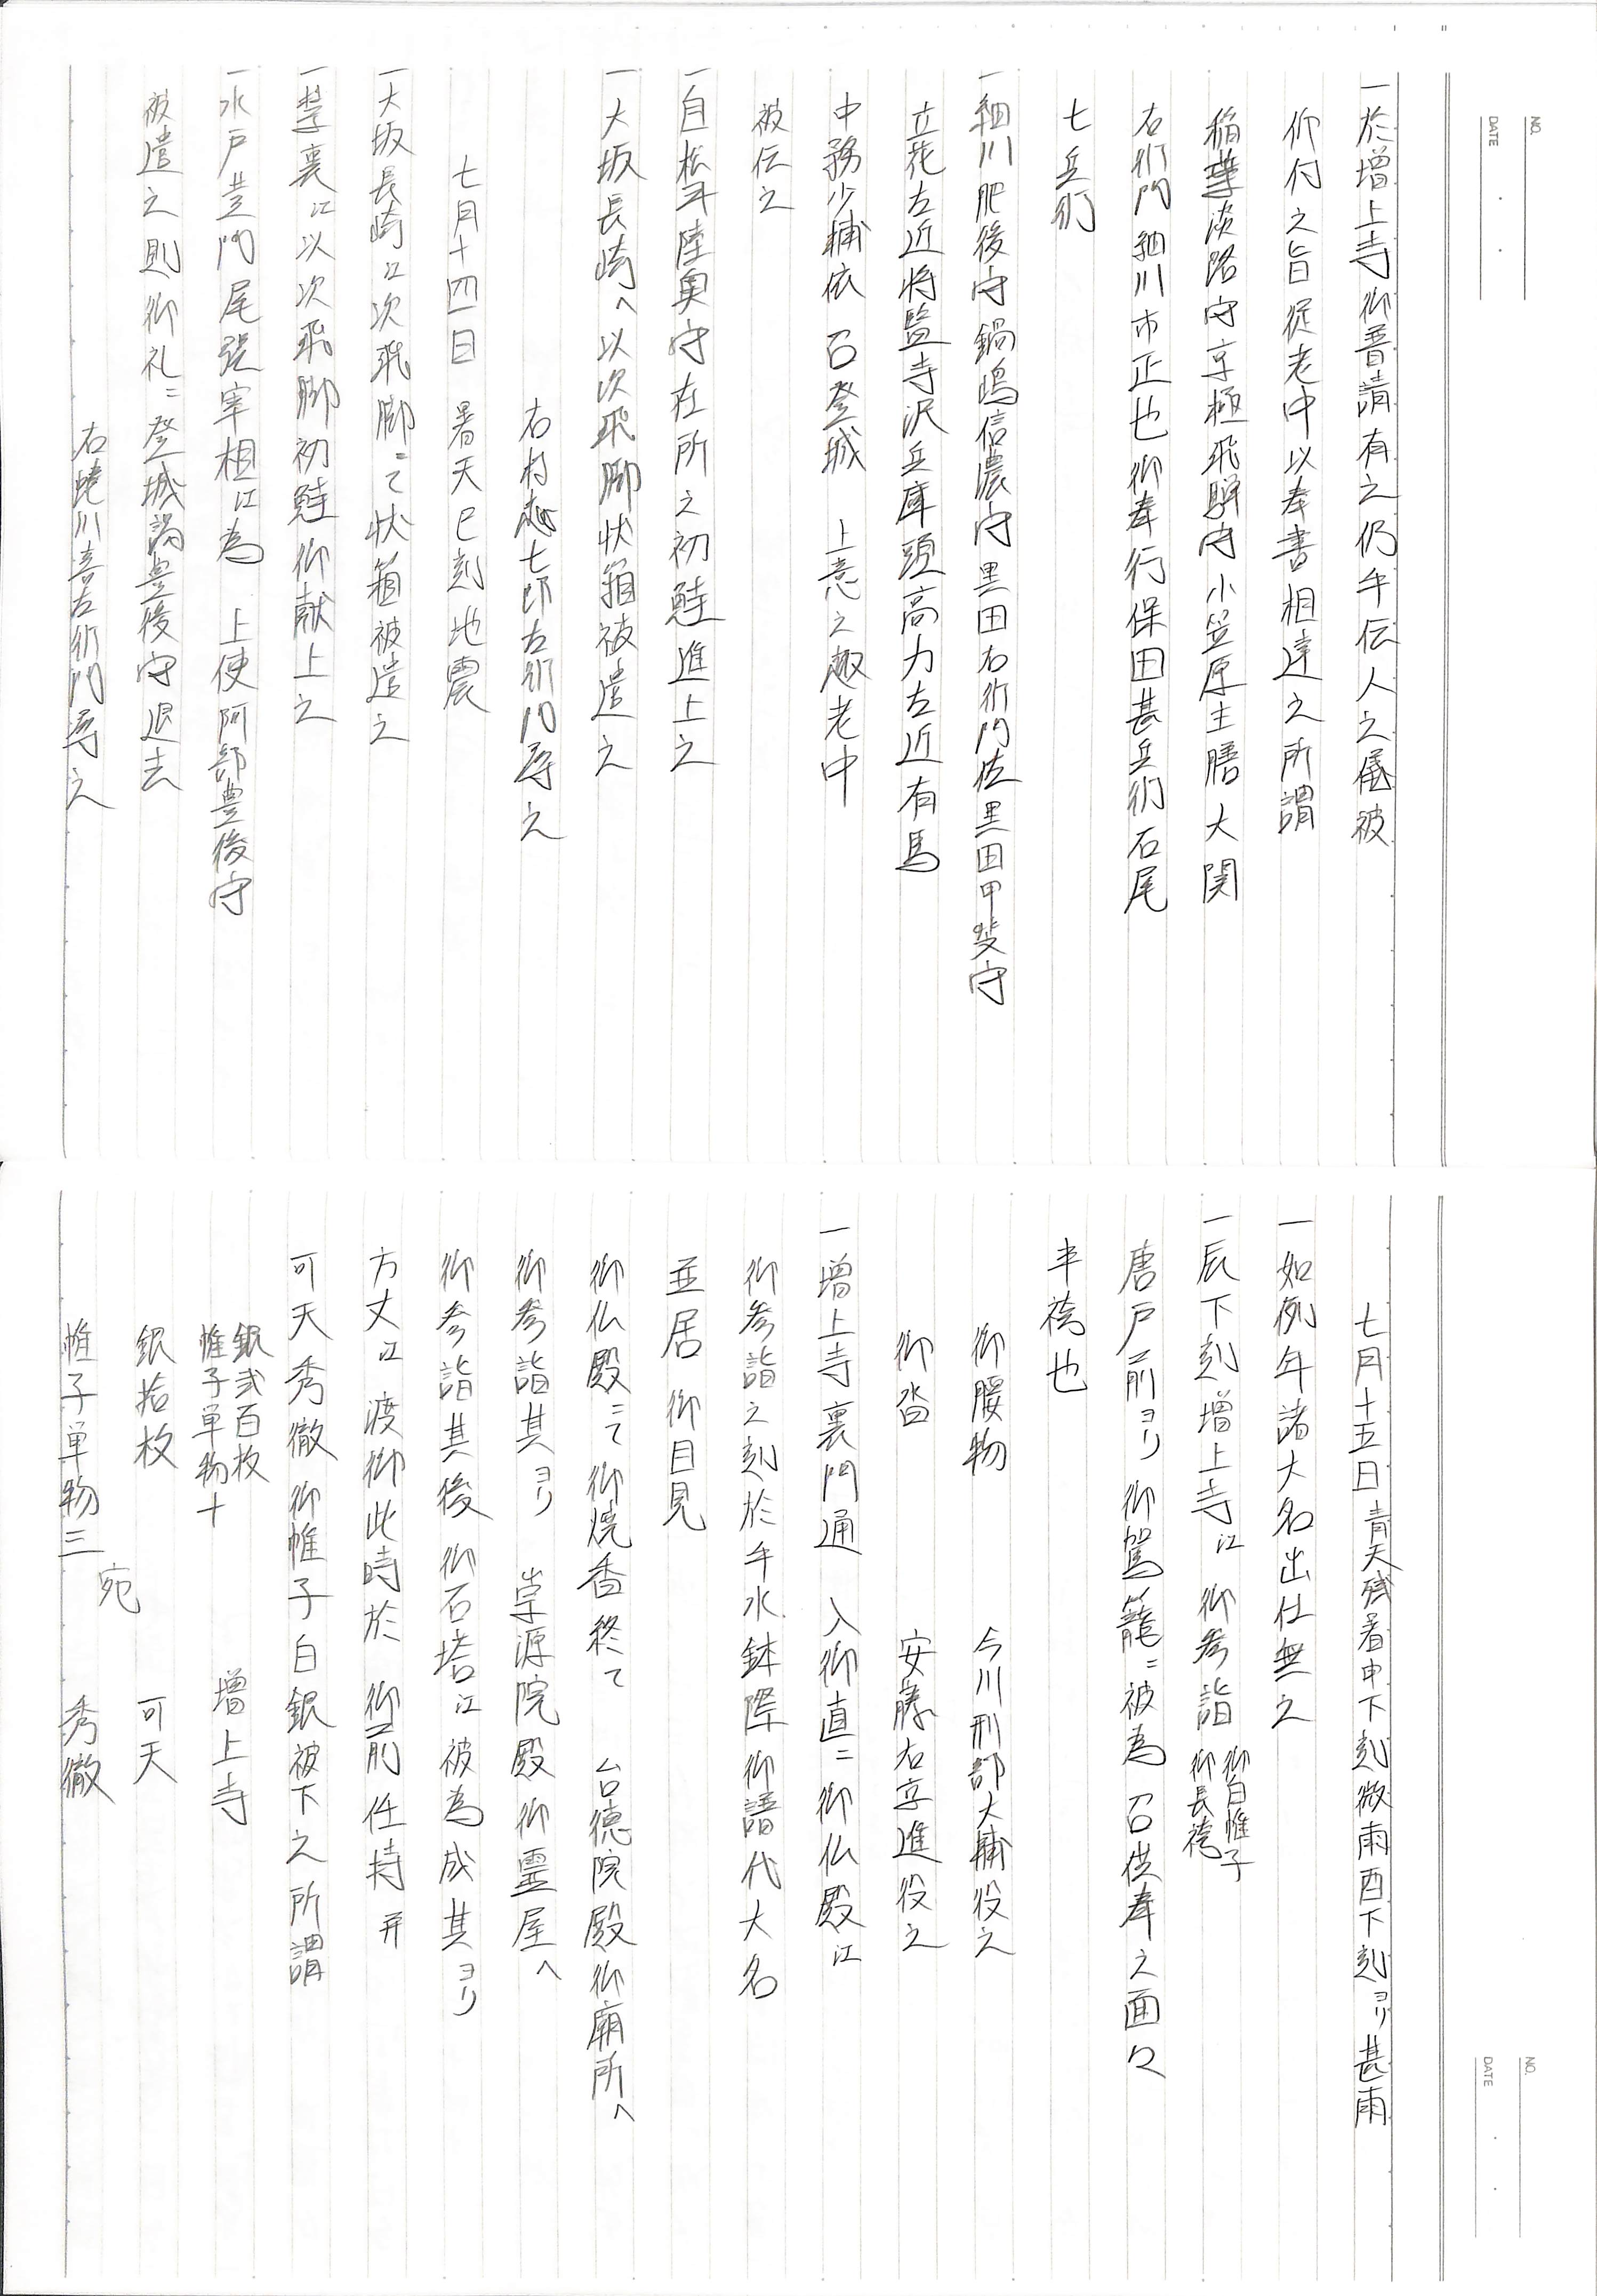 NO.
DATE
一於増上寺御普請有之仍手伝人之儀被
仰付之旨従老中以奉書相達之所謂
稲葉淡路守京極飛騨守小笠原主膳大関
右衛門細川市正也御奉行保田甚兵衛石尾
七兵衛
一細川肥後守鍋嶋信濃守黒田右衛門佐黒田甲斐守
立花左近将監寺沢兵庫頭高力左近有馬
中務少輔依 召登城 上意之趣老中
被伝之
一自松平陸奥守在所之初鮭進上之
一大坂長崎へ以次飛脚状箱被遣之
右村越七郎左衛門奉之
七月十四日 暑天巳刻地震
一大坂長崎江次飛脚ニて状箱被遣之
一禁裏江以次飛脚初鮭御献上之
一水戸黄門尾張宰相江為 上使阿部豊後守
被遣之則御礼ニ登城謁豊後守退去
右蜷川喜左衛門奉之
NO.
DATE
七月十五日 青天残暑申下刻微雨酉下刻ヨリ甚雨
一如例年諸大名出仕無之
一辰下刻増上寺江 御参詣 御白帷子 御長袴
唐戸前ヨリ御駕籠ニ被為 召供奉之面々
半袴也
御腰物 今川刑部大輔役之
御沓 安藤右京進役之
一増上寺裏門通 入御直ニ御仏殿江
御参詣之刻於手水鉢際御譜代大名
並居 御目見
御仏殿ニて御焼香終て 台徳院殿御廟所へ
御参詣其ヨリ 崇源院殿御霊屋へ
御参詣其後御石塔江被為成其ヨリ
方丈江渡御此時於 御前住持并
可天秀徹御帷子白銀被下之所謂
銀弐百枚
帷子単物十 増上寺
銀拾枚 可天
宛
帷子単物三 秀徹